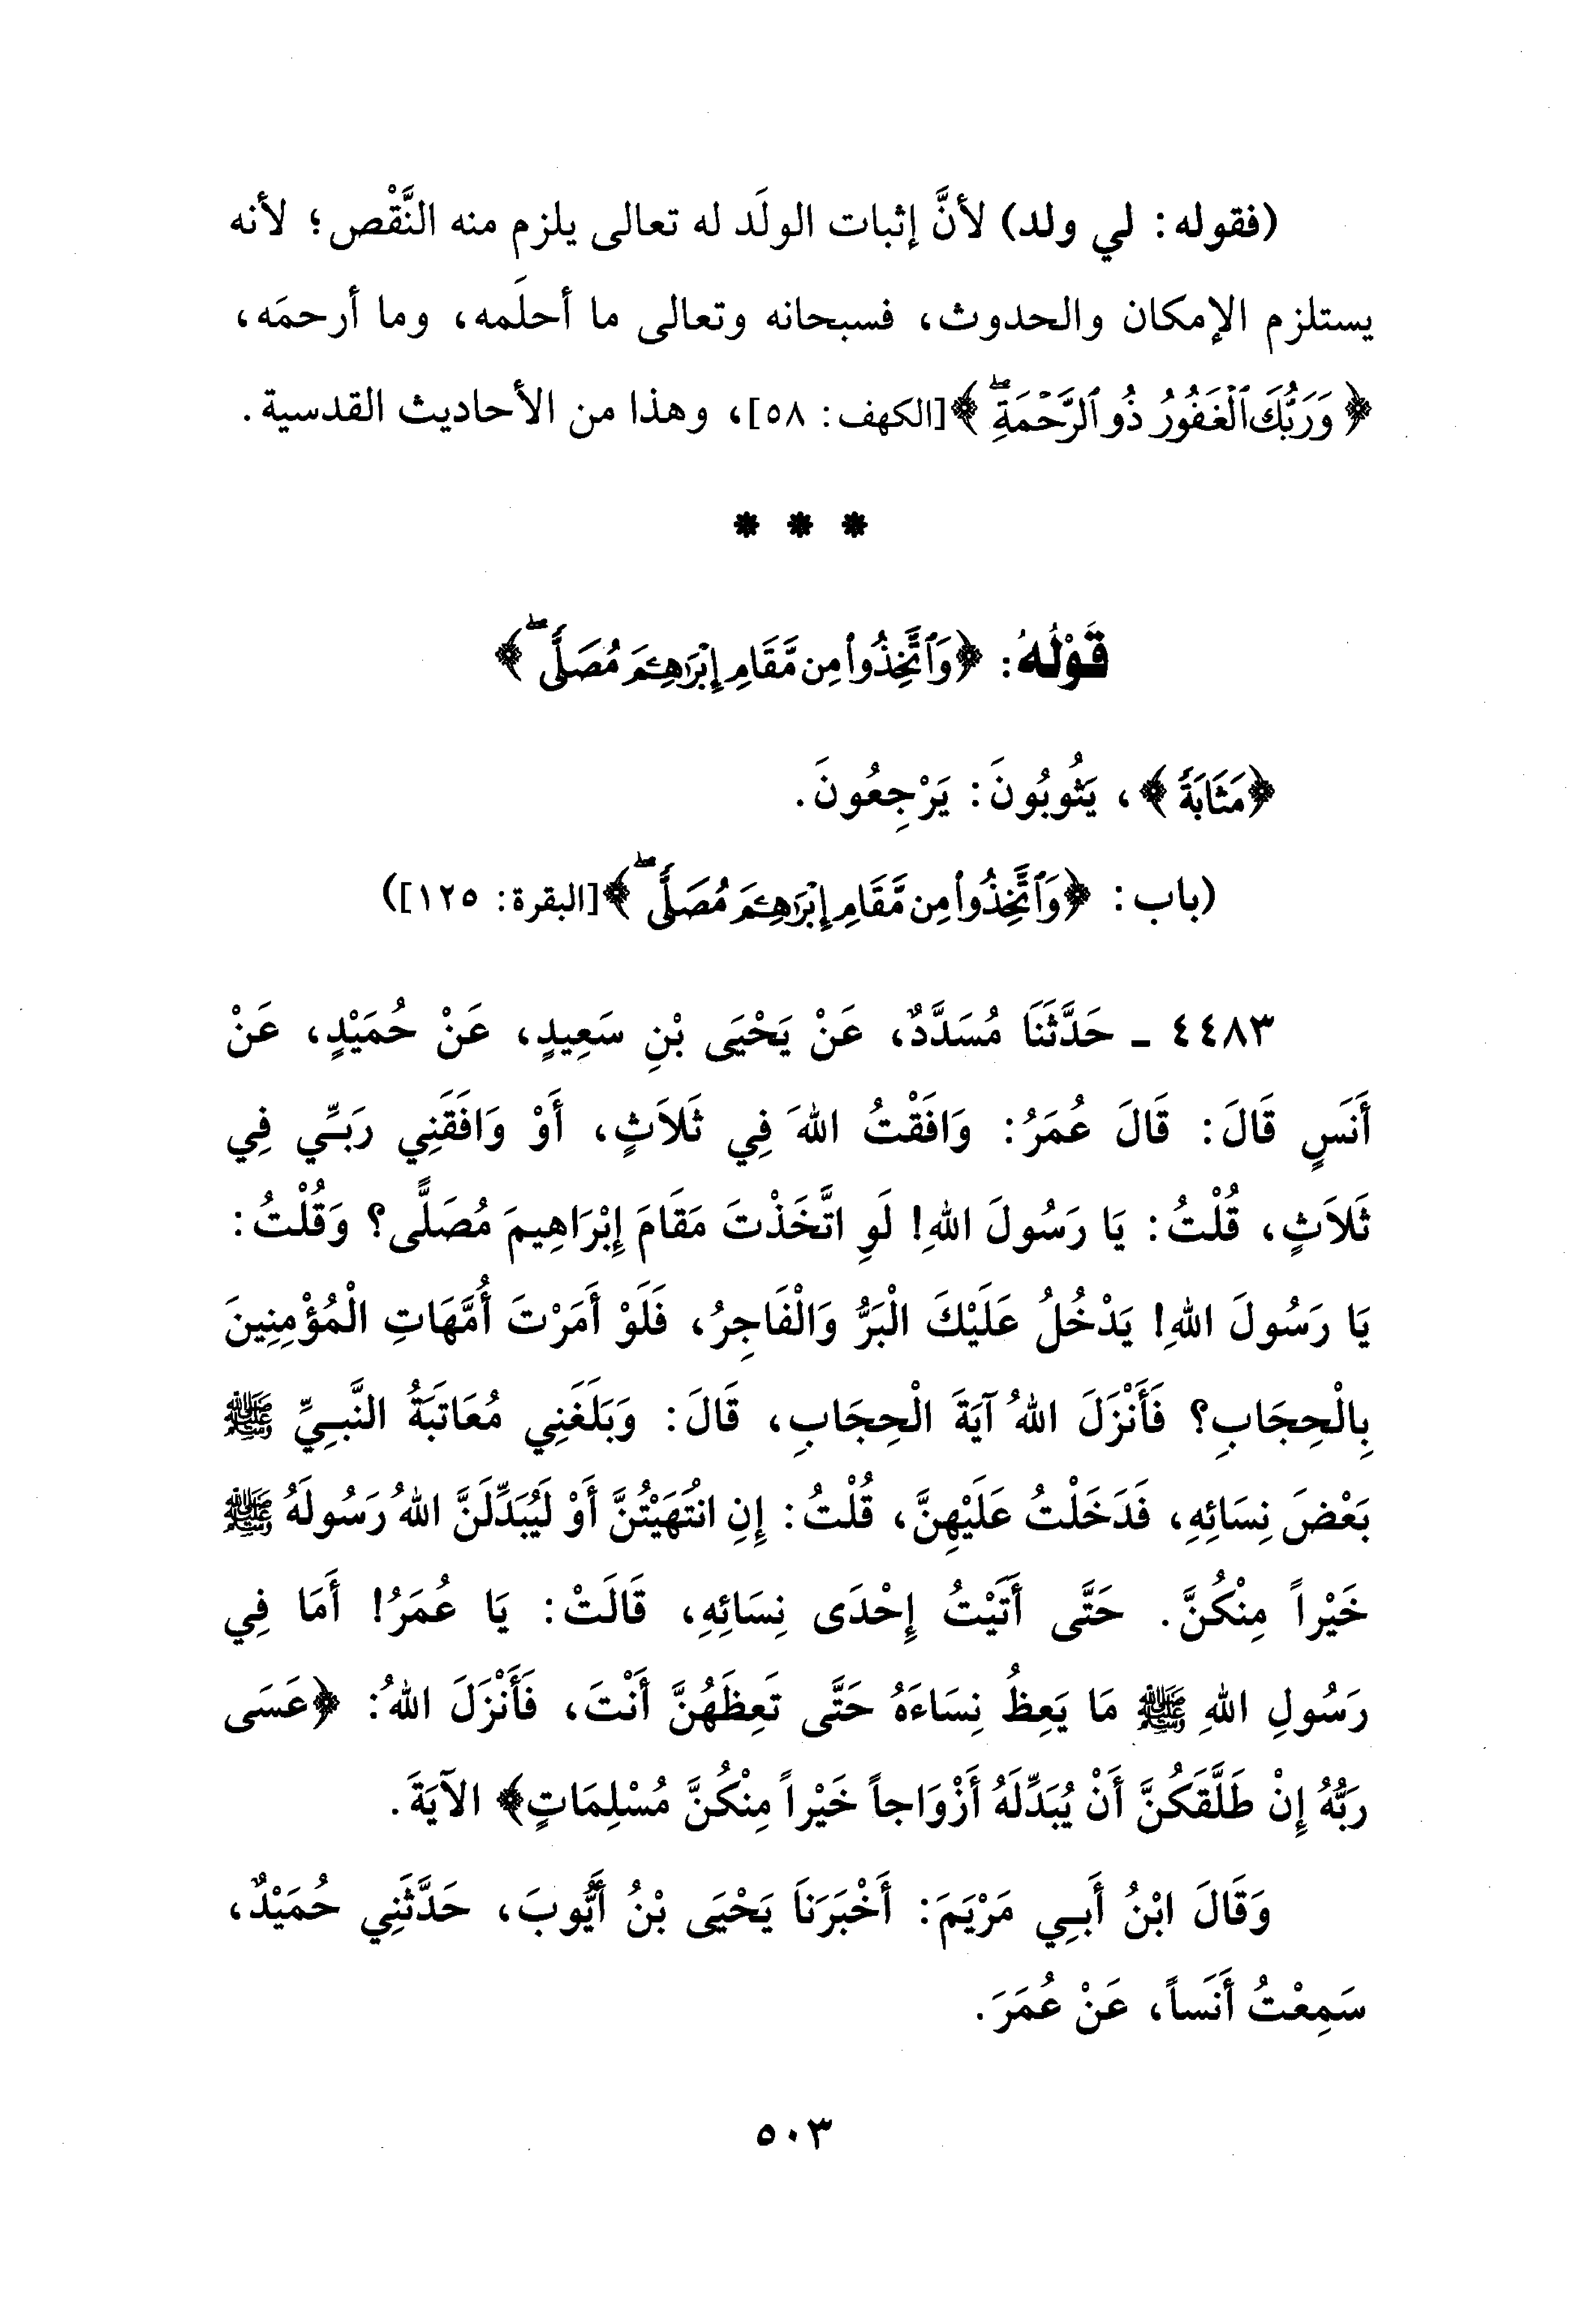 (فقوله: لي ولد) لأنَّ إثبات الولَد له تعالى يلزم منه النَّقْص؛ لأنه
يستلزم الإمكان والحدوث، فسبحانه وتعالى ما أحلَمه، وما أرحمَه،
﴿وَرَبُّكَ ٱلْغَفُورُ ذُو ٱلرَّحْمَةِ ۖ﴾ [الكهف: ٥٨]، وهذا من الأحاديث القدسية.
* * *
قَوْلُهُ: ﴿وَٱتَّخِذُوا۟ مِن مَّقَامِ إِبْرَٰهِـۧمَ مُصَلًّى ۖ﴾
﴿مَثَابَةً﴾، يَثُوبُونَ: يَرْجِعُونَ.
(باب: ﴿وَٱتَّخِذُوا۟ مِن مَّقَامِ إِبْرَٰهِـۧمَ مُصَلًّى ۖ﴾ [البقرة: ١٢٥])
٤٤٨٣ ـ حَدَّثَنَا مُسَدَّدٌ، عَنْ يَحْيَى بْنِ سَعِيدٍ، عَنْ حُمَيْدٍ، عَنْ
أَنَسٍ قَالَ: قَالَ عُمَرُ: وَافَقْتُ اللهَ فِي ثَلاَثٍ، أَوْ وَافَقَنِي رَبِّي فِي
ثَلاَثٍ، قُلْتُ: يَا رَسُولَ اللهِ! لَوِ اتَّخَذْتَ مَقَامَ إِبْرَاهِيمَ مُصَلًّى؟ وَقُلْتُ:
يَا رَسُولَ اللهِ! يَدْخُلُ عَلَيْكَ الْبَرُّ وَالْفَاجِرُ، فَلَوْ أَمَرْتَ أُمَّهَاتِ الْمُؤْمِنِينَ
بِالْحِجَابِ؟ فَأَنْزَلَ اللهُ آيَةَ الْحِجَابِ، قَالَ: وَبَلَغَنِي مُعَاتَبَةُ النَّبِيِّ ﷺ
بَعْضَ نِسَائِهِ، فَدَخَلْتُ عَلَيْهِنَّ، قُلْتُ: إِنِ انْتَهَيْتُنَّ أَوْ لَيُبَدِّلَنَّ اللهُ رَسُولَهُ ﷺ
خَيْراً مِنْكُنَّ. حَتَّى أَتَيْتُ إِحْدَى نِسَائِهِ، قَالَتْ: يَا عُمَرُ! أَمَا فِي
رَسُولِ اللهِ ﷺ مَا يَعِظُ نِسَاءَهُ حَتَّى تَعِظَهُنَّ أَنْتَ، فَأَنْزَلَ اللهُ: ﴿عَسَى
رَبُّهُ إِنْ طَلَّقَكُنَّ أَنْ يُبَدِّلَهُ أَزْوَاجاً خَيْراً مِنْكُنَّ مُسْلِمَاتٍ﴾ الآيَةَ.
وَقَالَ ابْنُ أَبِي مَرْيَمَ: أَخْبَرَنَا يَحْيَى بْنُ أَيُّوبَ، حَدَّثَنِي حُمَيْدٌ،
سَمِعْتُ أَنَساً، عَنْ عُمَرَ.
٥٠٣